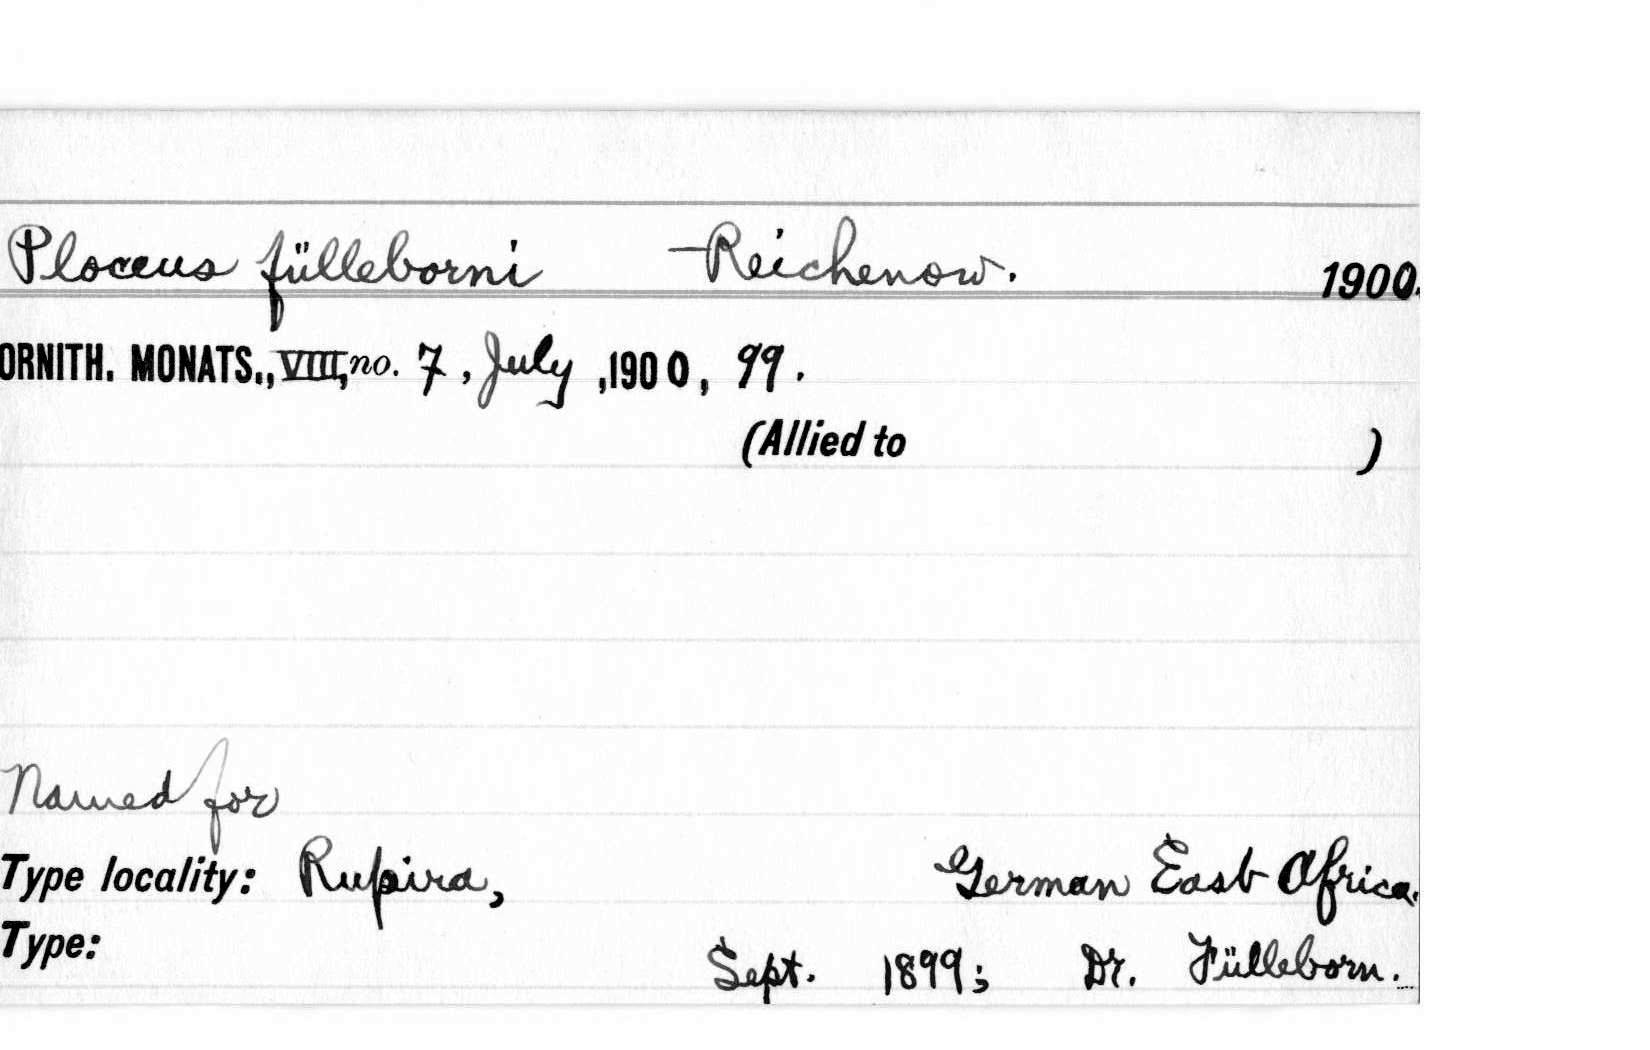 Ploceus fülleborni — Reichenow. 1900.
ORNITH. MONATS., VIII, no. 7, July, 1900, 99.
(Allied to )
Named for
Type locality: Rupira, German East Africa.
Type: Sept. 1899; Dr. Fülleborn.